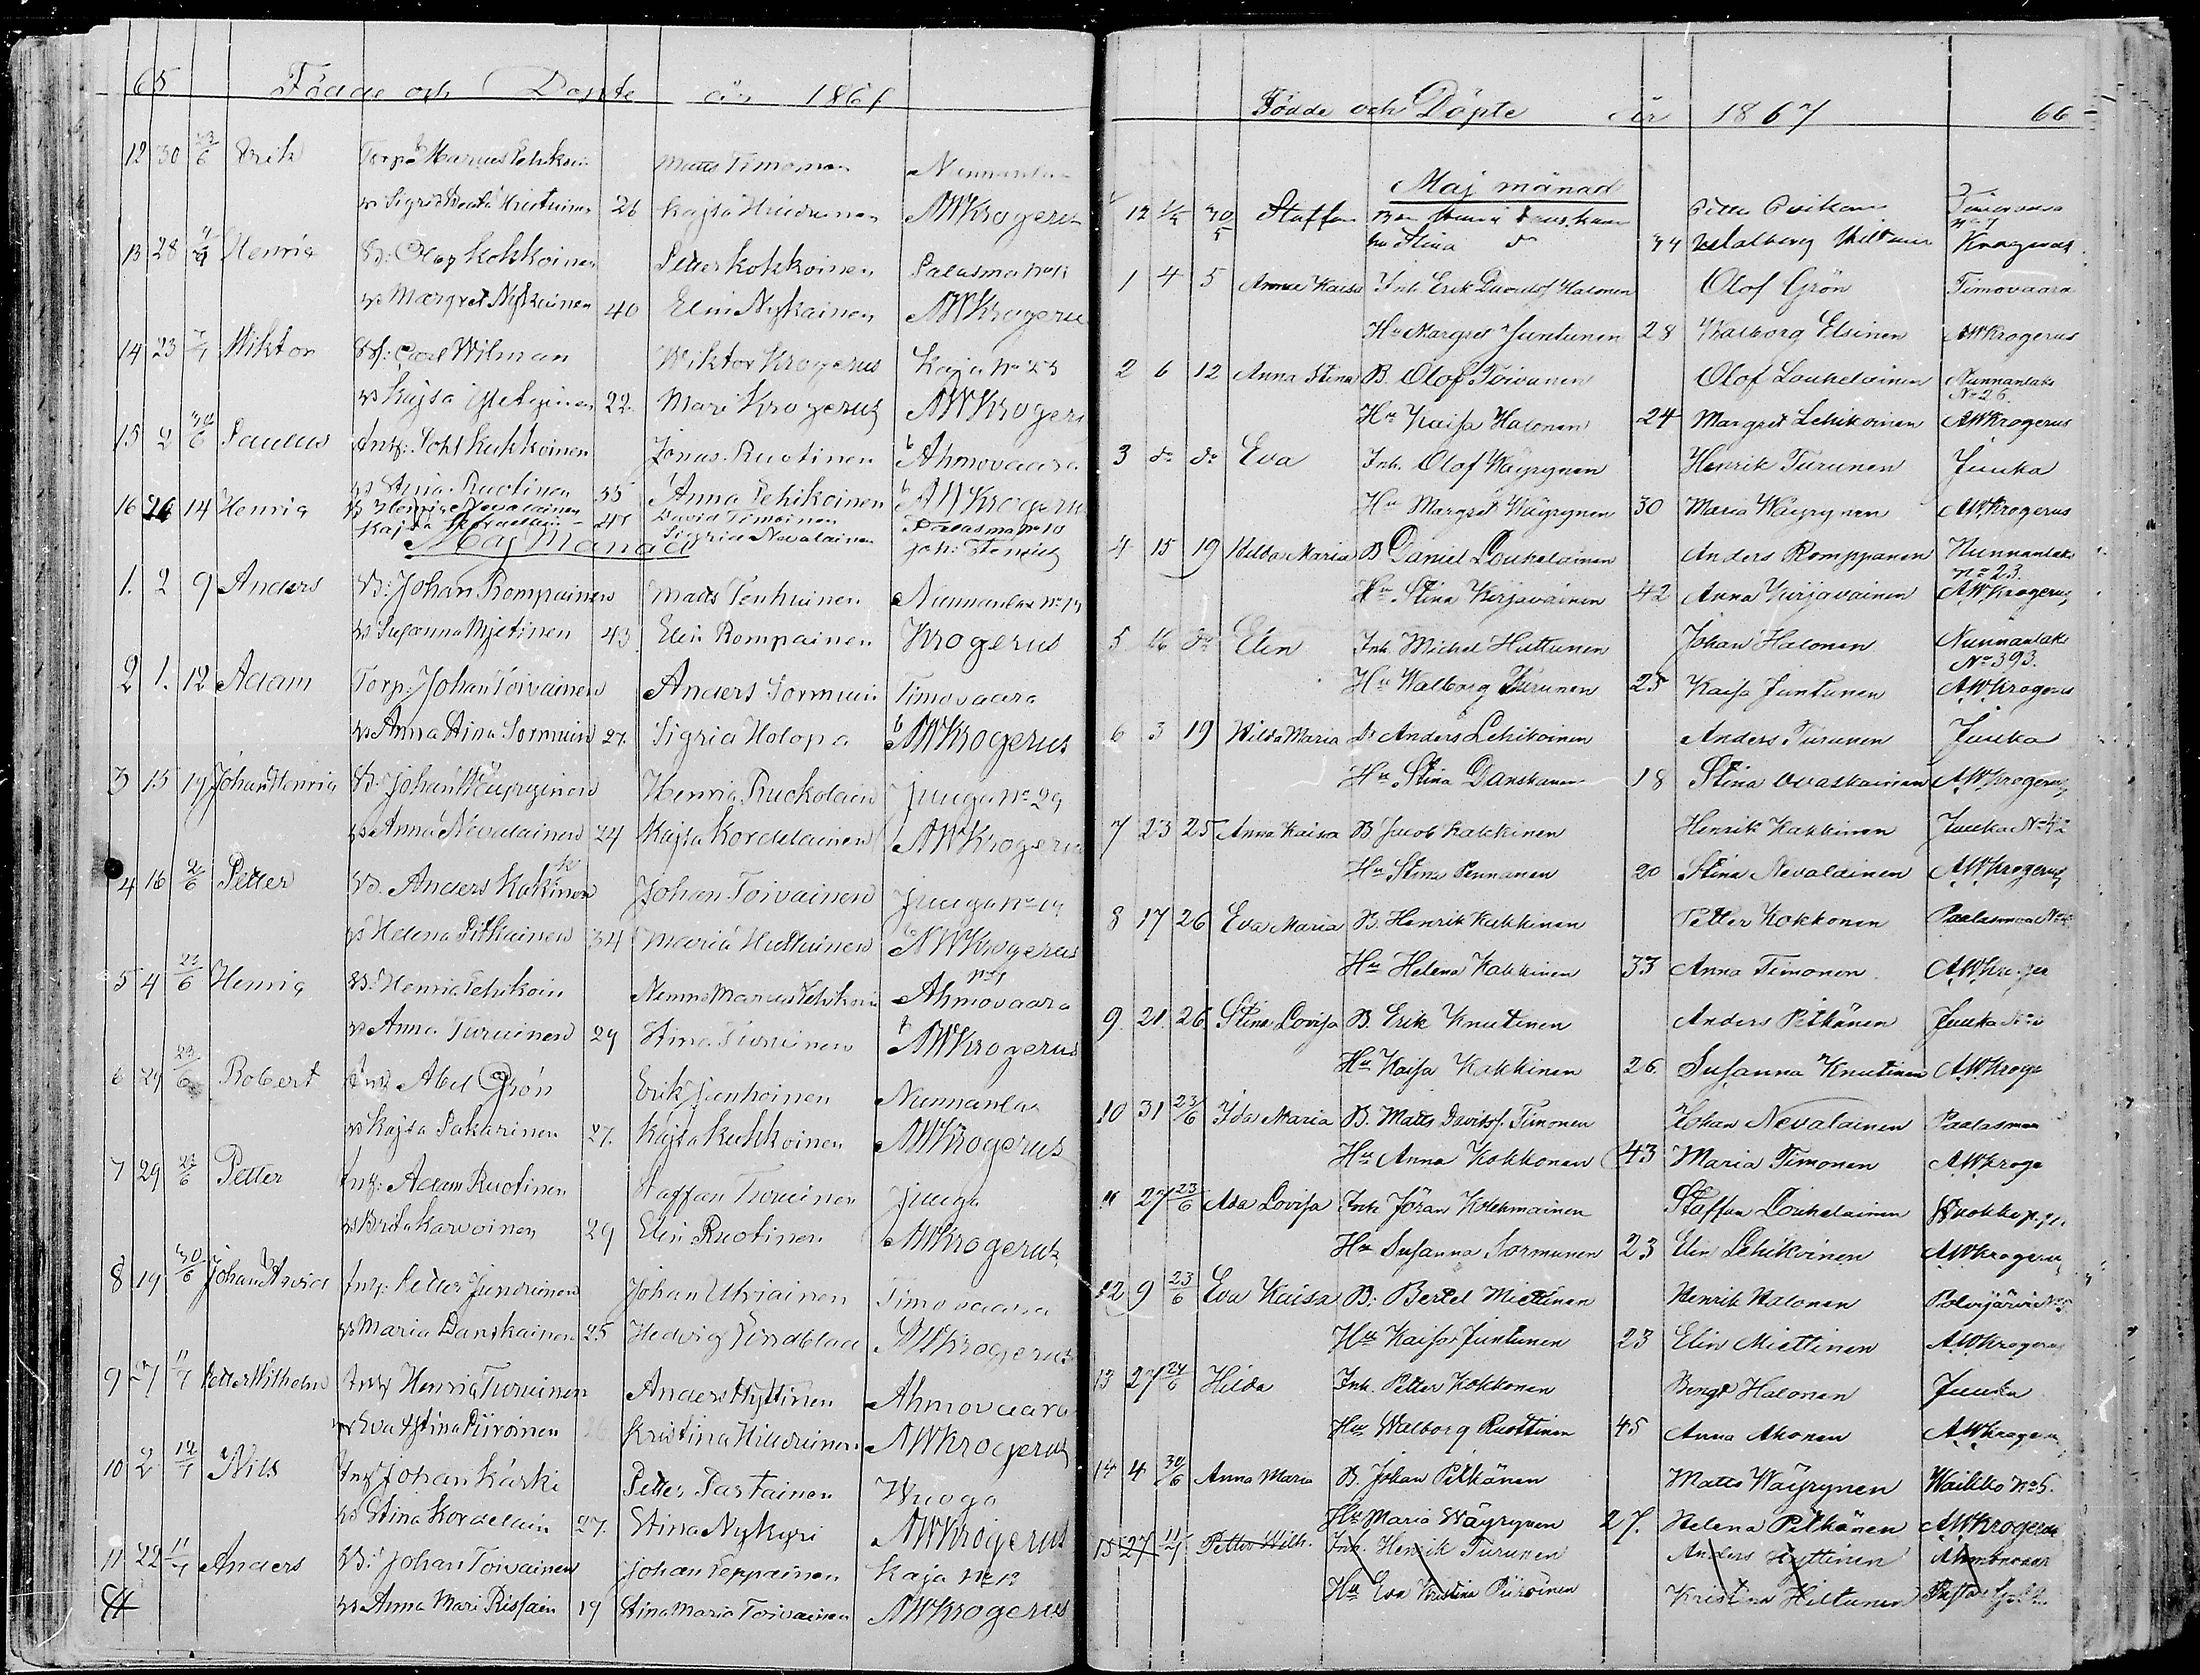 65 Födde och Döpte år 1867
12 30 23/6 Erik Torp. Marcus Lehikoin Matts Timoinen Nunnanlax
hs Sigrid Beata Hiltuinen 26 Kajsa Hiuduinen AWKrogerus
13 28 Henric B: Olof Kokkoinen Petter Kokkoinen Palasma No 11
hs Margret Nykäinen 40 Elin Nykäinen AWKrogerus
14 23 7/7 Wiktor Carl Wilman Wiktor Krogerus Kaja No 23
hs Kajsa 22. Mari Krogerus AWKrogerus
15 2 30/6 Paulus Inh: Kukkoinen Jonas Ruotinen Ahmovaara
hs Stina Ruotinen 35 Anna Lehikoinen AWKrogerus
16 26 14 Henric B Henric Nevalainen David Timoinen Palasma No 10
Kajsa Sigrid Nevalainen Joh: Stenius
Maj Månad
1. 2 9 Anders B: Johan Rompainen Matts Tenhuinen Nunnanlax No 19
hs Susanna Mjetinen 43 Elin Rompainen Krogerus
2 1. 12 Adam Torp. Johan Toivainen Anders Sormuin Timovaara
hs Anna Stina Sormuin 27. Sigrid Holopa AWKrogerus
3 15 19 Johan Henric B: Johan Wäyryinen Henric Ruokolain Juuga No 29
hs Anna Nevalainen 24 Kajsa Kordelainen AWKrogerus
4 16 2/6 Petter B. Anders Kakinen Johan Toivainen Juuga No 19
hs Helena Pitkäinen 34 Maria Huttuinen AWKrogerus
5 4 23/6 Henric B: Henric Lehikoin Marcus Lehikoin Ahmovaara
hs Anna Turuinen 29 Stina Turuinen AWKrogerus
6 29 23/6 Robert Inh Abel Grön Erik Junhoinen Nunnanlax
hs Kajsa Sakarinen 27. Kajsa Kukkoinen AWKrogerus
7 29 23/6 Petter Inh: Adam Ruotinen Staffan Turuinen Juuga
hs Brita Karvoinen 29 Elin Ruotinen AWKrogerus
8 19 30/6 Johan Arvid Inh: Petter Junduinen Johan Uhriainen Timovaara
hs Maria Danskainen 25 Hedvig Lindblad AWKrogerus
9 27 11/7 Petter Wilhelm Inh Henric Turuinen Anders Hyttinen Ahmovaara
hs Eva Stina Piiroinen 26 Kristina Hilduinen AWKrogerus
10 2 12/7 Nils Inh Johan Kärki Petter Partainen Wuogo
hs Stina Kordelain 27. Stina Nykyri AWKrogerus
11 22 11/7 Anders B: Johan Toivainen Johan Teppainen Kaja No 12
hs Anna Mari Rissain 19 Stina Maria Toivainen AWKrogerus
Födde och Döpte år 1867 66
Maj månad
12 30/5 Staffan Petter Timovaara
hu Stina do 34 Walborg Hiltunen Krogerus
1 4 5 Anna Kaisa Inh. Erik Davidsf Halonen Olof Grön Timovaara
Hu Margret Juntunen 28 Walborg Elsinen AWKrogerus
2 6 12 Anna Stina B. Olof Toivanen Olof Loukelainen Nunnanlaks No 26.
Hu Kaisa Halonen 24 Margret Lehikoinen AWKrogerus
3 do do Eva Inh. Olof Wäyrynen Henrik Turunen Juuka
Hu Margret Wäyrynen 30 Maria Wäyrynen AWKrogerus
4 15 19 Hilda Maria B Daniel Loukelainen Anders Romppanen Nunnanlaks No 23.
Hu Stina Kirjavainen 42 Anna Kirjavainen AWKrogerus
5 16 do Elin Inh. Michel Huttunen Johan Halonen Nunnanlaks No 393.
Hu Walborg Turunen 25 Kaisa Juntunen AWKrogerus
6 3 19 Hilda Maria Dr Anders Lehikoinen Anders Turunen Juuka
Hu Stina Danskanen 18 Stina Ovaskainen AWKrogerus
7 23 25 Anna Kaisa B Jacob Kakkinen Henrik Kakkinen Juuka No 42
Hu Stina Pennanen 20 Stina Nevalainen AWKrogerus
8 17 26 Eva Maria B. Henrik Kakkinen Petter Kokkonen Paalasmaa No 4
Hu Helena Kakkinen 33 Anna Timonen AWKroger
9. 21. 26 Stina Lovisa B. Erik Knutinen Anders Pitkänen Juuka
Hu Kaisa Kakkinen 26. Susanna Knutinen AWKroge
10 31 23/6 Ida Maria B. Matts Davidsf. Timonen Johan Nevalainen Paalasmaa
Hu Anna Kokkonen 43 Maria Timonen AWKroge
11 27 23/6 Ada Lovisa Inh Jöran Kolehmainen Staffan Loukelainen Wuokko
Hu Susanna Sormunen 23 Elin Lehikoinen AWKrogerus
12 9 23/6 Eva Kaisa B: Bertel Miettinen Henrik Halonen Polvijärvi
Hu Kaisa Juntunen 23 Elin Miettinen AWKrogerus
13 27 24/6 Hilda Inh. Petter Kokkonen Bengt Halonen Juuka
Hu Walborg Ruottinen 45 Anna Ahonen AWKrogerus
14 4 30/6 Anna Maria B. Johan Pitkänen Matts Wäyrynen Waikko No 5.
Hu Maria Wäyrynen 27. Helena Pitkänen AWKrogerus
15 27 11/7 Petter Wilh. Inh. Henrik Turunen Anders Hyttinen Ahmovaar
Hu Eva Kristina Piiroinen Kristina Hiltunen